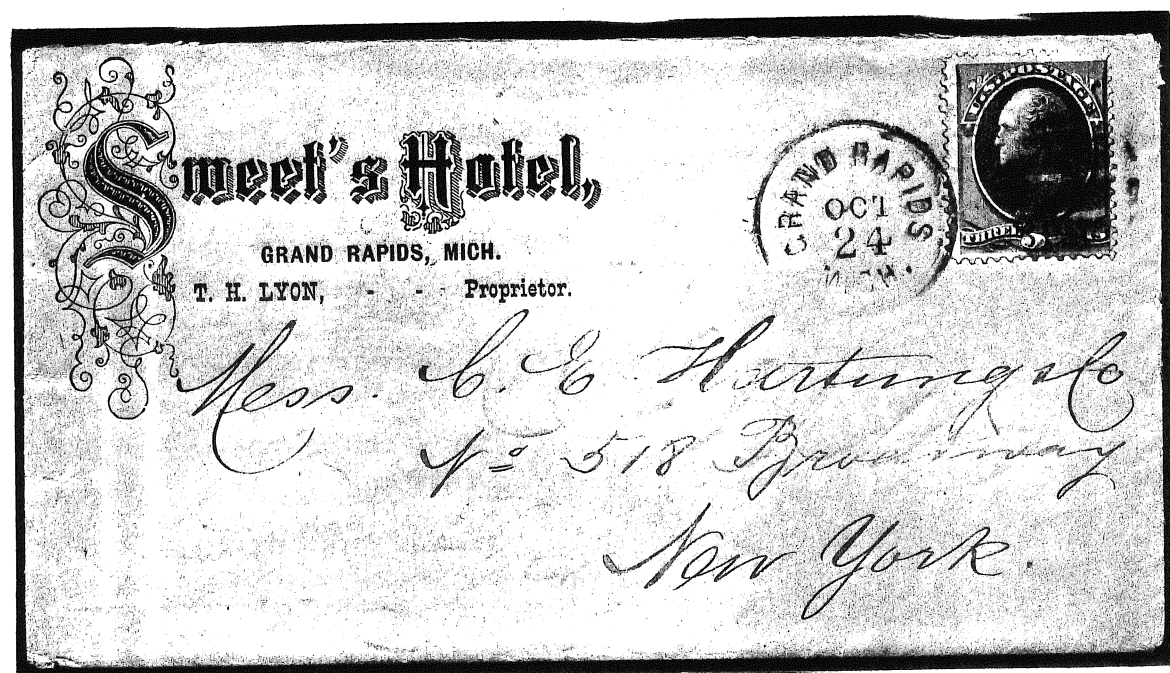 Sweet's Hotel,
GRAND RAPIDS, MICH.
T. H. LYON, - - Proprietor.
GRAND RAPIDS
OCT
24
MICH.
U.S. POSTAGE
THREE
Mess. C. E. Hartung & Co
No 518 Broadway
New York.